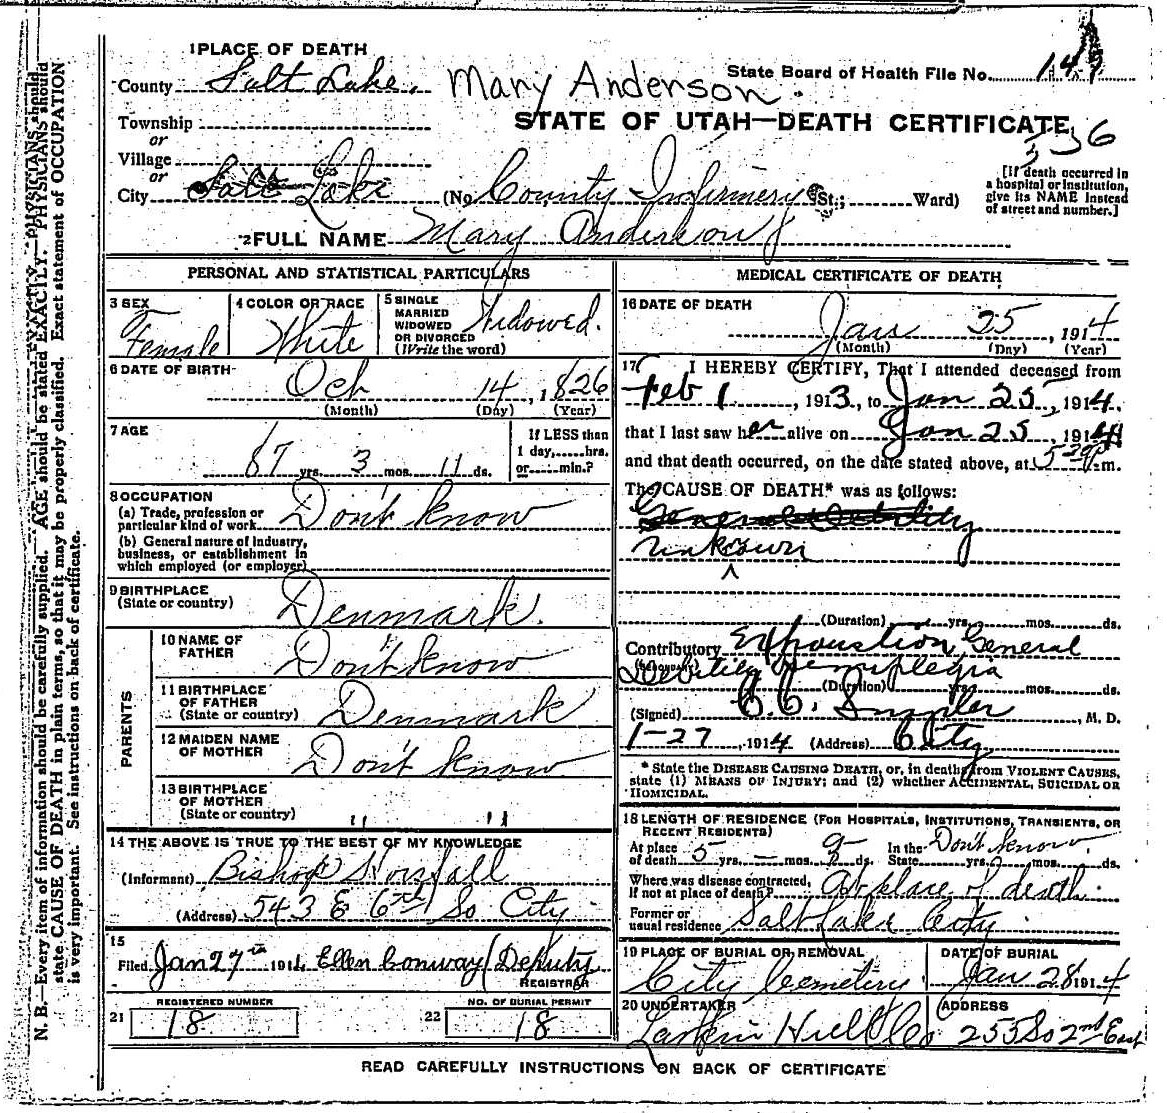 1 PLACE OF DEATH
County Salt Lake. Mary Anderson. State Board of Health File No. 149
STATE OF UTAH—DEATH CERTIFICATE
336
Township
or
Village
or
City Salt Lake (No. County Infirmery St.; Ward)
[If death occurred in a hospital or institution, give its NAME instead of street and number.]
2 FULL NAME Mary Anderson
PERSONAL AND STATISTICAL PARTICULARS
3 SEX Female
4 COLOR OR RACE White
5 SINGLE MARRIED WIDOWED OR DIVORCED (Write the word) Widowed.
6 DATE OF BIRTH Oct 14, 1826
(Month) (Day) (Year)
7 AGE 87 yrs. 3 mos. 11 ds.
If LESS than 1 day,.....hrs. or.....min.?
8 OCCUPATION
(a) Trade, profession or particular kind of work Don't know
(b) General nature of Industry, business, or establishment in which employed (or employer)
9 BIRTHPLACE (State or country) Denmark.
PARENTS
10 NAME OF FATHER Don't know
11 BIRTHPLACE OF FATHER (State or country) Denmark
12 MAIDEN NAME OF MOTHER Don't know
13 BIRTHPLACE OF MOTHER (State or country) " "
14 THE ABOVE IS TRUE TO THE BEST OF MY KNOWLEDGE
(Informant) Bishop
(Address) 543 E 6th So City
15
Filed Jan 27th 1914 Ellen Conway (Deputy
REGISTRAR
21 REGISTERED NUMBER 18
22 NO. OF BURIAL PERMIT 18
MEDICAL CERTIFICATE OF DEATH
16 DATE OF DEATH
Jan 25, 1914
(Month) (Day) (Year)
17 I HEREBY CERTIFY, That I attended deceased from
Feb 1, 1913, to Jan 25, 1914.
that I last saw her alive on Jan 25 1914
and that death occurred, on the date stated above, at 5 m.
The CAUSE OF DEATH* was as follows:
General Debility
Unknown
(Duration) yrs. mos. ds.
Contributory Exhaustion, General
(SECONDARY) Debility Hemiplegia
(Duration) yrs. mos. ds.
(Signed) , M. D.
1-27, 1914 (Address) City
* State the DISEASE CAUSING DEATH, or, in deaths from VIOLENT CAUSES,
state (1) MEANS OF INJURY; and (2) whether ACCIDENTAL, SUICIDAL OR
HOMICIDAL.
18 LENGTH OF RESIDENCE (FOR HOSPITALS, INSTITUTIONS, TRANSIENTS, OR
RECENT RESIDENTS)
At place of death 5 yrs. – mos. 9 ds. In the State Don't know. yrs. mos. ds.
Where was disease contracted, If not at place of death? At place of death.
Former or usual residence Salt Lake City
19 PLACE OF BURIAL OR REMOVAL City Cemetery
DATE OF BURIAL Jan 28 1914
20 UNDERTAKER Larkin Hull Co
ADDRESS 255 So 2nd East
READ CAREFULLY INSTRUCTIONS ON BACK OF CERTIFICATE
N. B.—Every item of information should be carefully supplied. AGE should be stated EXACTLY. PHYSICIANS should
state CAUSE OF DEATH in plain terms, so that it may be properly classified. Exact statement of OCCUPATION
is very important. See instructions on back of certificate.